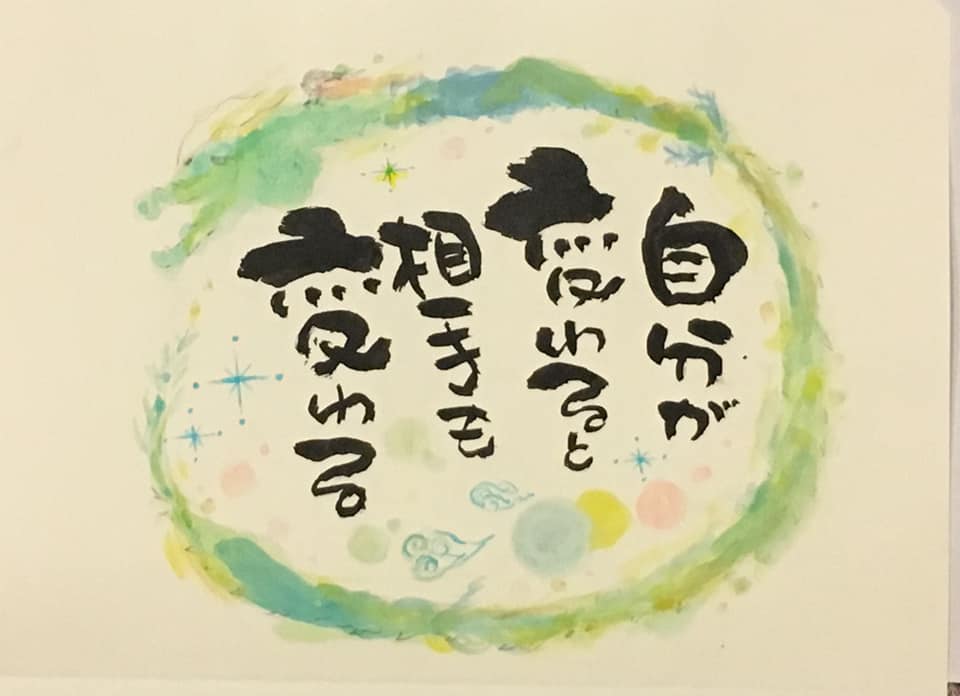 自分が
変わると
相手も
変わる